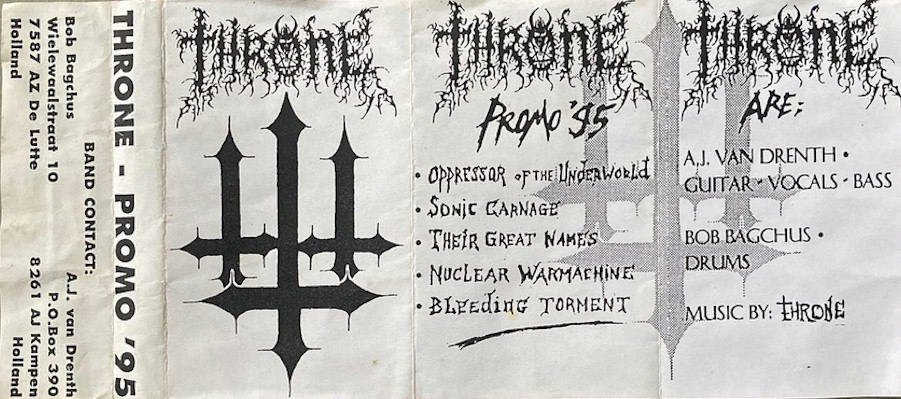 Bob Bagchus
Wielewaalstraat 10
7587 AZ De Lutte
Holland
BAND CONTACT:
A.J. van Drenth
P.O.Box 390
8261 AJ Kampen
Holland
THRONE - PROMO '95
THRONE
THRONE
PROMO '95
• OPPRESSOR OF THE UNDERWORLD
• SONIC CARNAGE
• THEIR GREAT NAMES
• NUCLEAR WARMACHINE
• BLEEDING TORMENT
THRONE
ARE:
A.J. VAN DRENTH •
GUITAR - VOCALS - BASS
BOB BAGCHUS •
DRUMS
MUSIC BY: THRONE